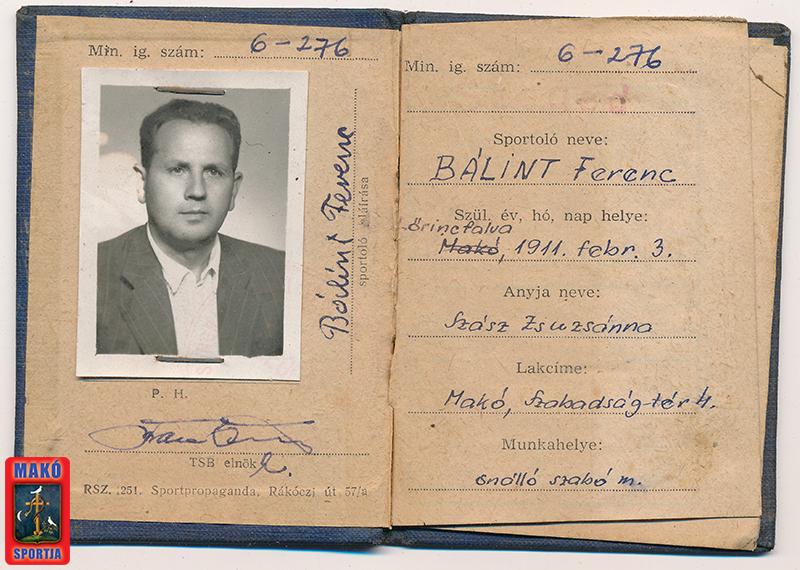 Min. ig. szám: 6-276
Bálint Ferenc
sportoló aláírása
P. H.
TSB elnök
RSZ. 251. Sportpropaganda, Rákóczi út 57/a
MAKÓ
SPORTJA
Min. ig. szám: 6-276
Sportoló neve:
BÁLINT Ferenc
Szül. év, hó, nap helye:
Lőrincfalva
Makó, 1911. febr. 3.
Anyja neve:
Szász Zsuzsánna
Lakcíme:
Makó, Szabadság-tér 4.
Munkahelye:
önálló szabó m.